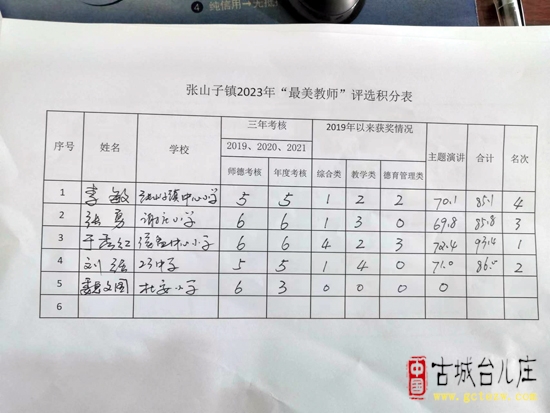 ④ 纯信用→无抵
张山子镇2023年“最美教师”评选积分表
序号 姓名 学校 三年考核 2019年以来获奖情况 主题演讲 合计 名次
2019、2020、2021
师德考核 年度考核 综合类 教学类 德育管理类
1 李敏 张山子镇中心小学 5 5 1 2 2 70.1 85.1 4
2 张勇 小学 6 6 1 3 0 69.8 85.8 3
3 红 中心小学 6 6 4 2 3 72.4 93.4 1
4 刘 中学 5 5 1 4 0 71.0 86.0 2
5 文国 杜安小学 6 3 0 0 0 0
6
中国 古城台儿庄